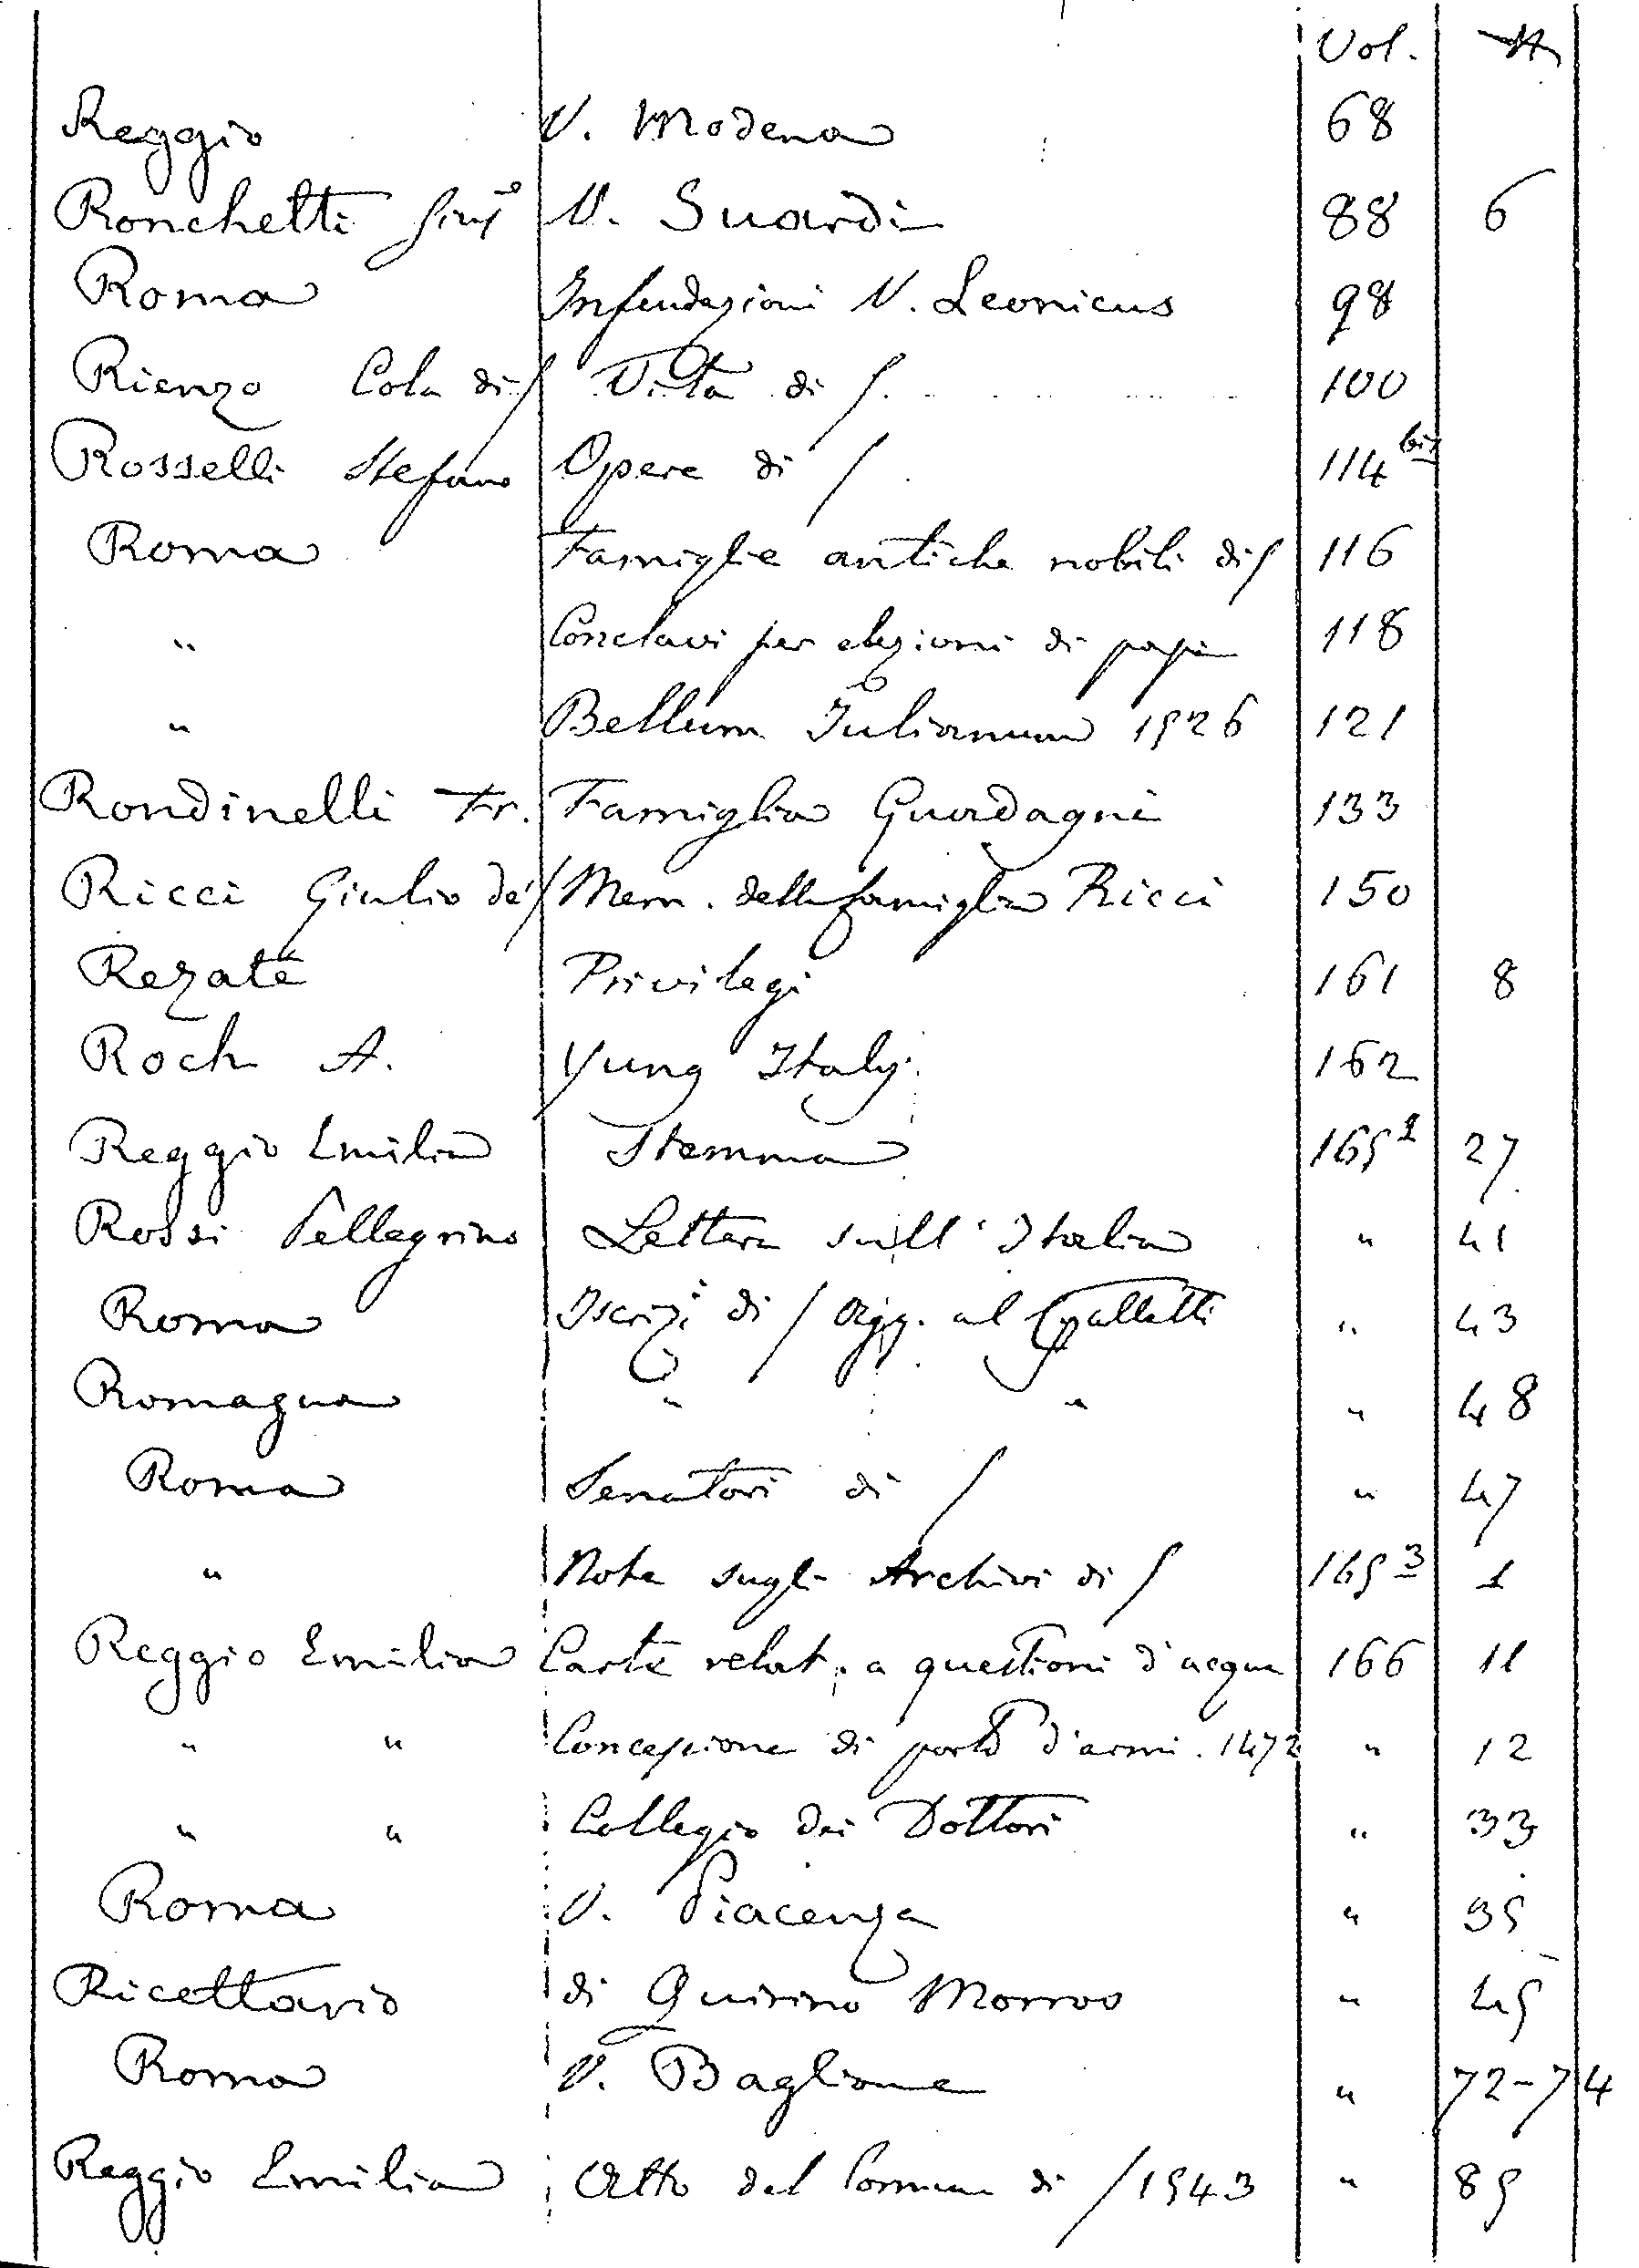 Vol.
Reggio V. Modena 68
Ronchetti V. Suardi 88 6
Roma Infeudazioni V. Leonicus 98
Rienzo Cola di / Vita di / 100
Rosselli Stefano Opere di / 114 bis
Roma Famiglie antiche nobili di / 116
" Conclavi per elezioni di papi 118
" Bellum Iulianum 1526 121
Rondinelli Fr. Famiglia Guadagni 133
Ricci Giulio de' / Mem. della famiglia Ricci 150
Rezate Privilegi 161 8
Roch A. Yung Italy. 162
Reggio Emilia Stemma 165 1 27
Rossi Pellegrino Lettera sull' Italia " 41
Roma Iscriz. di / Agg. al Galletti " 43
Romagna " " " 48
Roma Senatori di / " 47
" Nota sugli Archivi di / 165 3 1
Reggio Emilia Carte relat. a questioni d'acqua 166 11
" " Concessione di porto d'armi. 1472 " 12
" " Collegio dei Dottori " 33
Roma V. Piacenza " 35
Ricettario di Quirino Morroo " 45
Roma V. Baglione " 72-74
Reggio Emilia Atto del Comune di / 1543 " 85